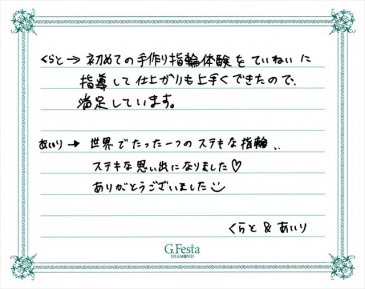 くらと→ 初めての手作り指輪体験をていねいに
指導して仕上がりも上手くできたので、
満足しています。
あいり→ 世界でたった一つのステキな指輪、
ステキな思い出になりました♡
ありがとうございました
くらと & あいり
G.Festa
DIAMOND